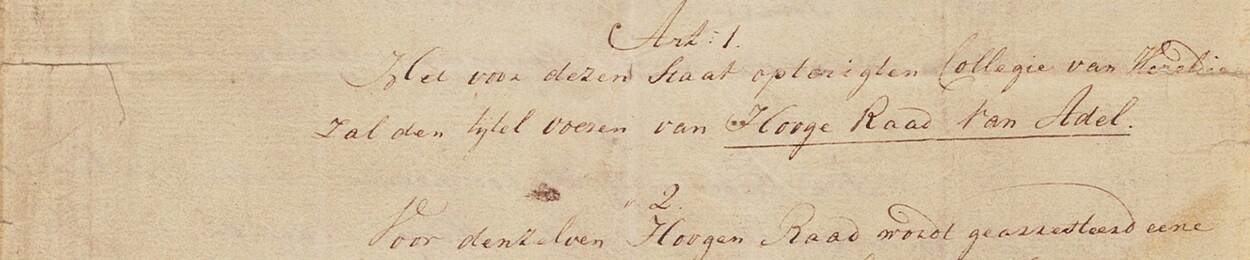 Art: 1.
Het voor dezen Staat opterigten Collegie van Heraldie
zal den tytel voeren van Hooge Raad van Adel.
2.
Voor denzelven Hoogen Raad wordt gearresteerd eene